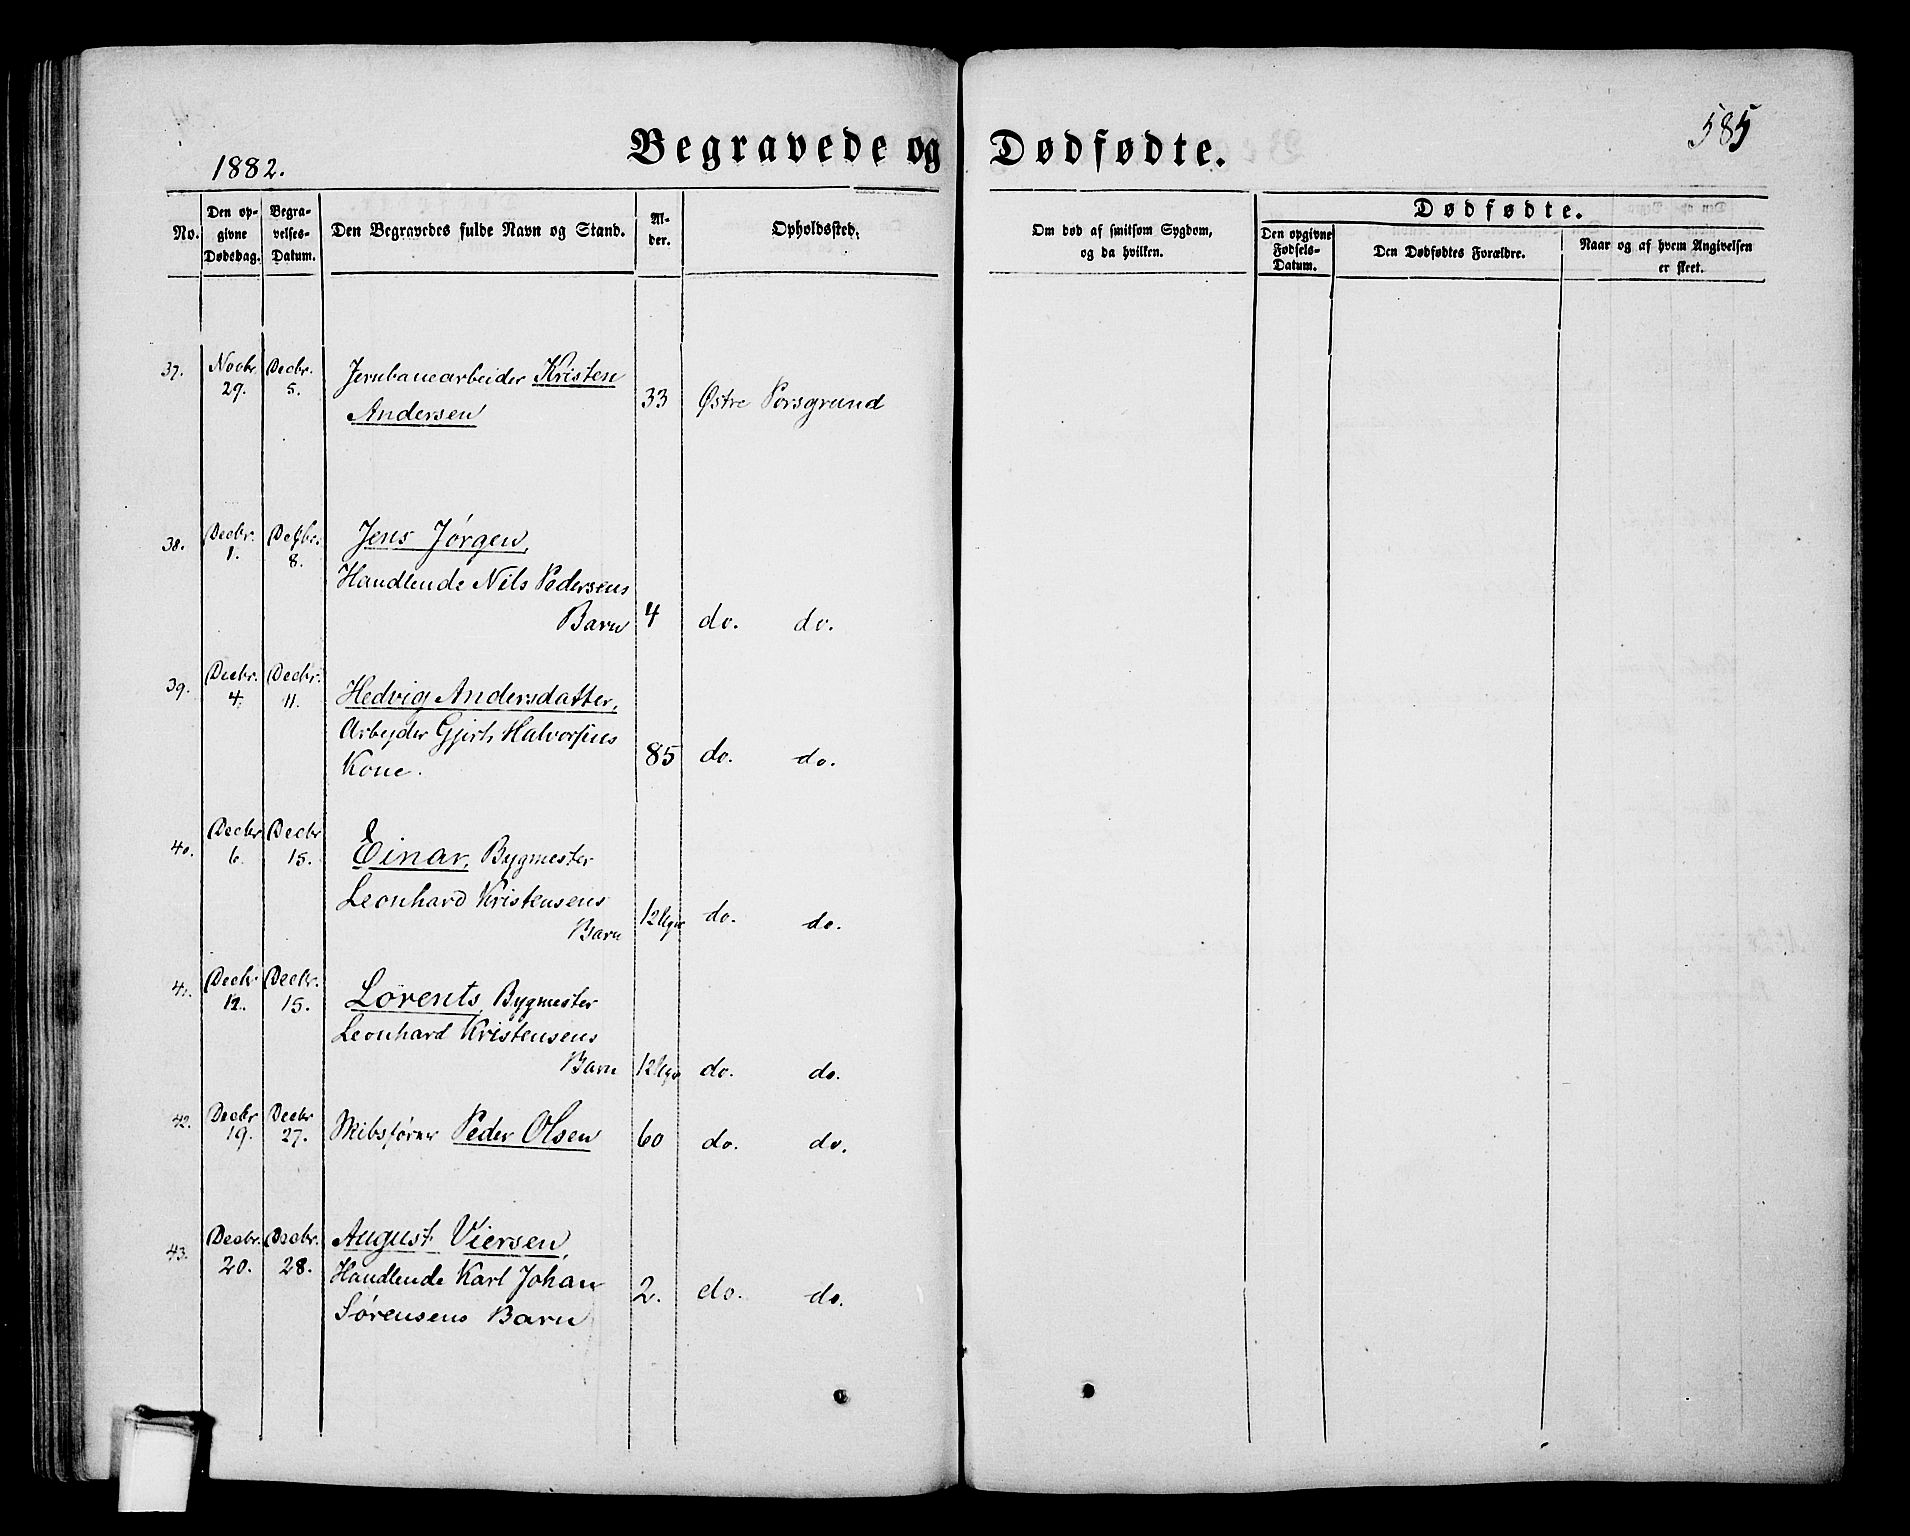 585
Begravede og Dødfødte.
1882.
No.
Den opgivne Dødsdag.
Begravelses-Datum.
Den Begravedes fulde Navn og Stand.
Alder.
Opholdssted.
Om død af smitsom Sygdom, og da hvilken.
Dødfødte.
Den opgivne Fødsels-Datum.
Den Dødfødtes Forældre.
Naar og af hvem Angivelsen er skeet.
37. Novbr. Decbr. Jernbanearbeider Kristen
29. 5. Andersen 33 Østre Porsgrund
38. Decbr. Jens Jørgen,
1. 8. Handlende Nils Pedersens
Barn 4 do. do.
39. Decbr. Decbr. Hedvig Andersdatter,
4. 11. Arbejder Halvorsens
Kone. 85 do. do.
40. Decbr Decbr Einar, Bygmester
6. 15. Leonhard Kristensens
Barn 12 do. do.
41. Decbr Decbr. Lorents, Bygmester
12. 15. Leonhard Kristensens
Barn 12 do. do.
42. Decbr Decbr Skibsfører Peder Olsen 60 do. do.
19. 27.
43. Decbr. Decbr. August Viersen,
20. 28. Handlende Karl Johan
Sørensens Barn 2. do. do.